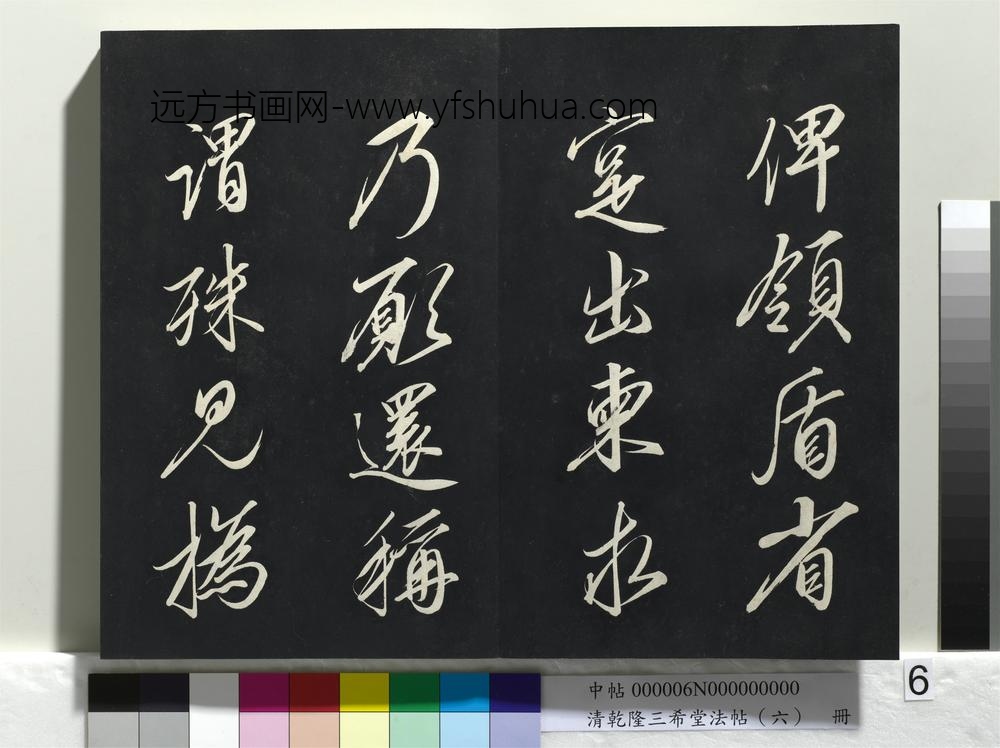 远方书画网-www.yfshuhua.com
俾領盾省
寔出柬求
乃願還稱
謂殊見撝
6
中帖 000006N000000000
清乾隆三希堂法帖（六） 冊